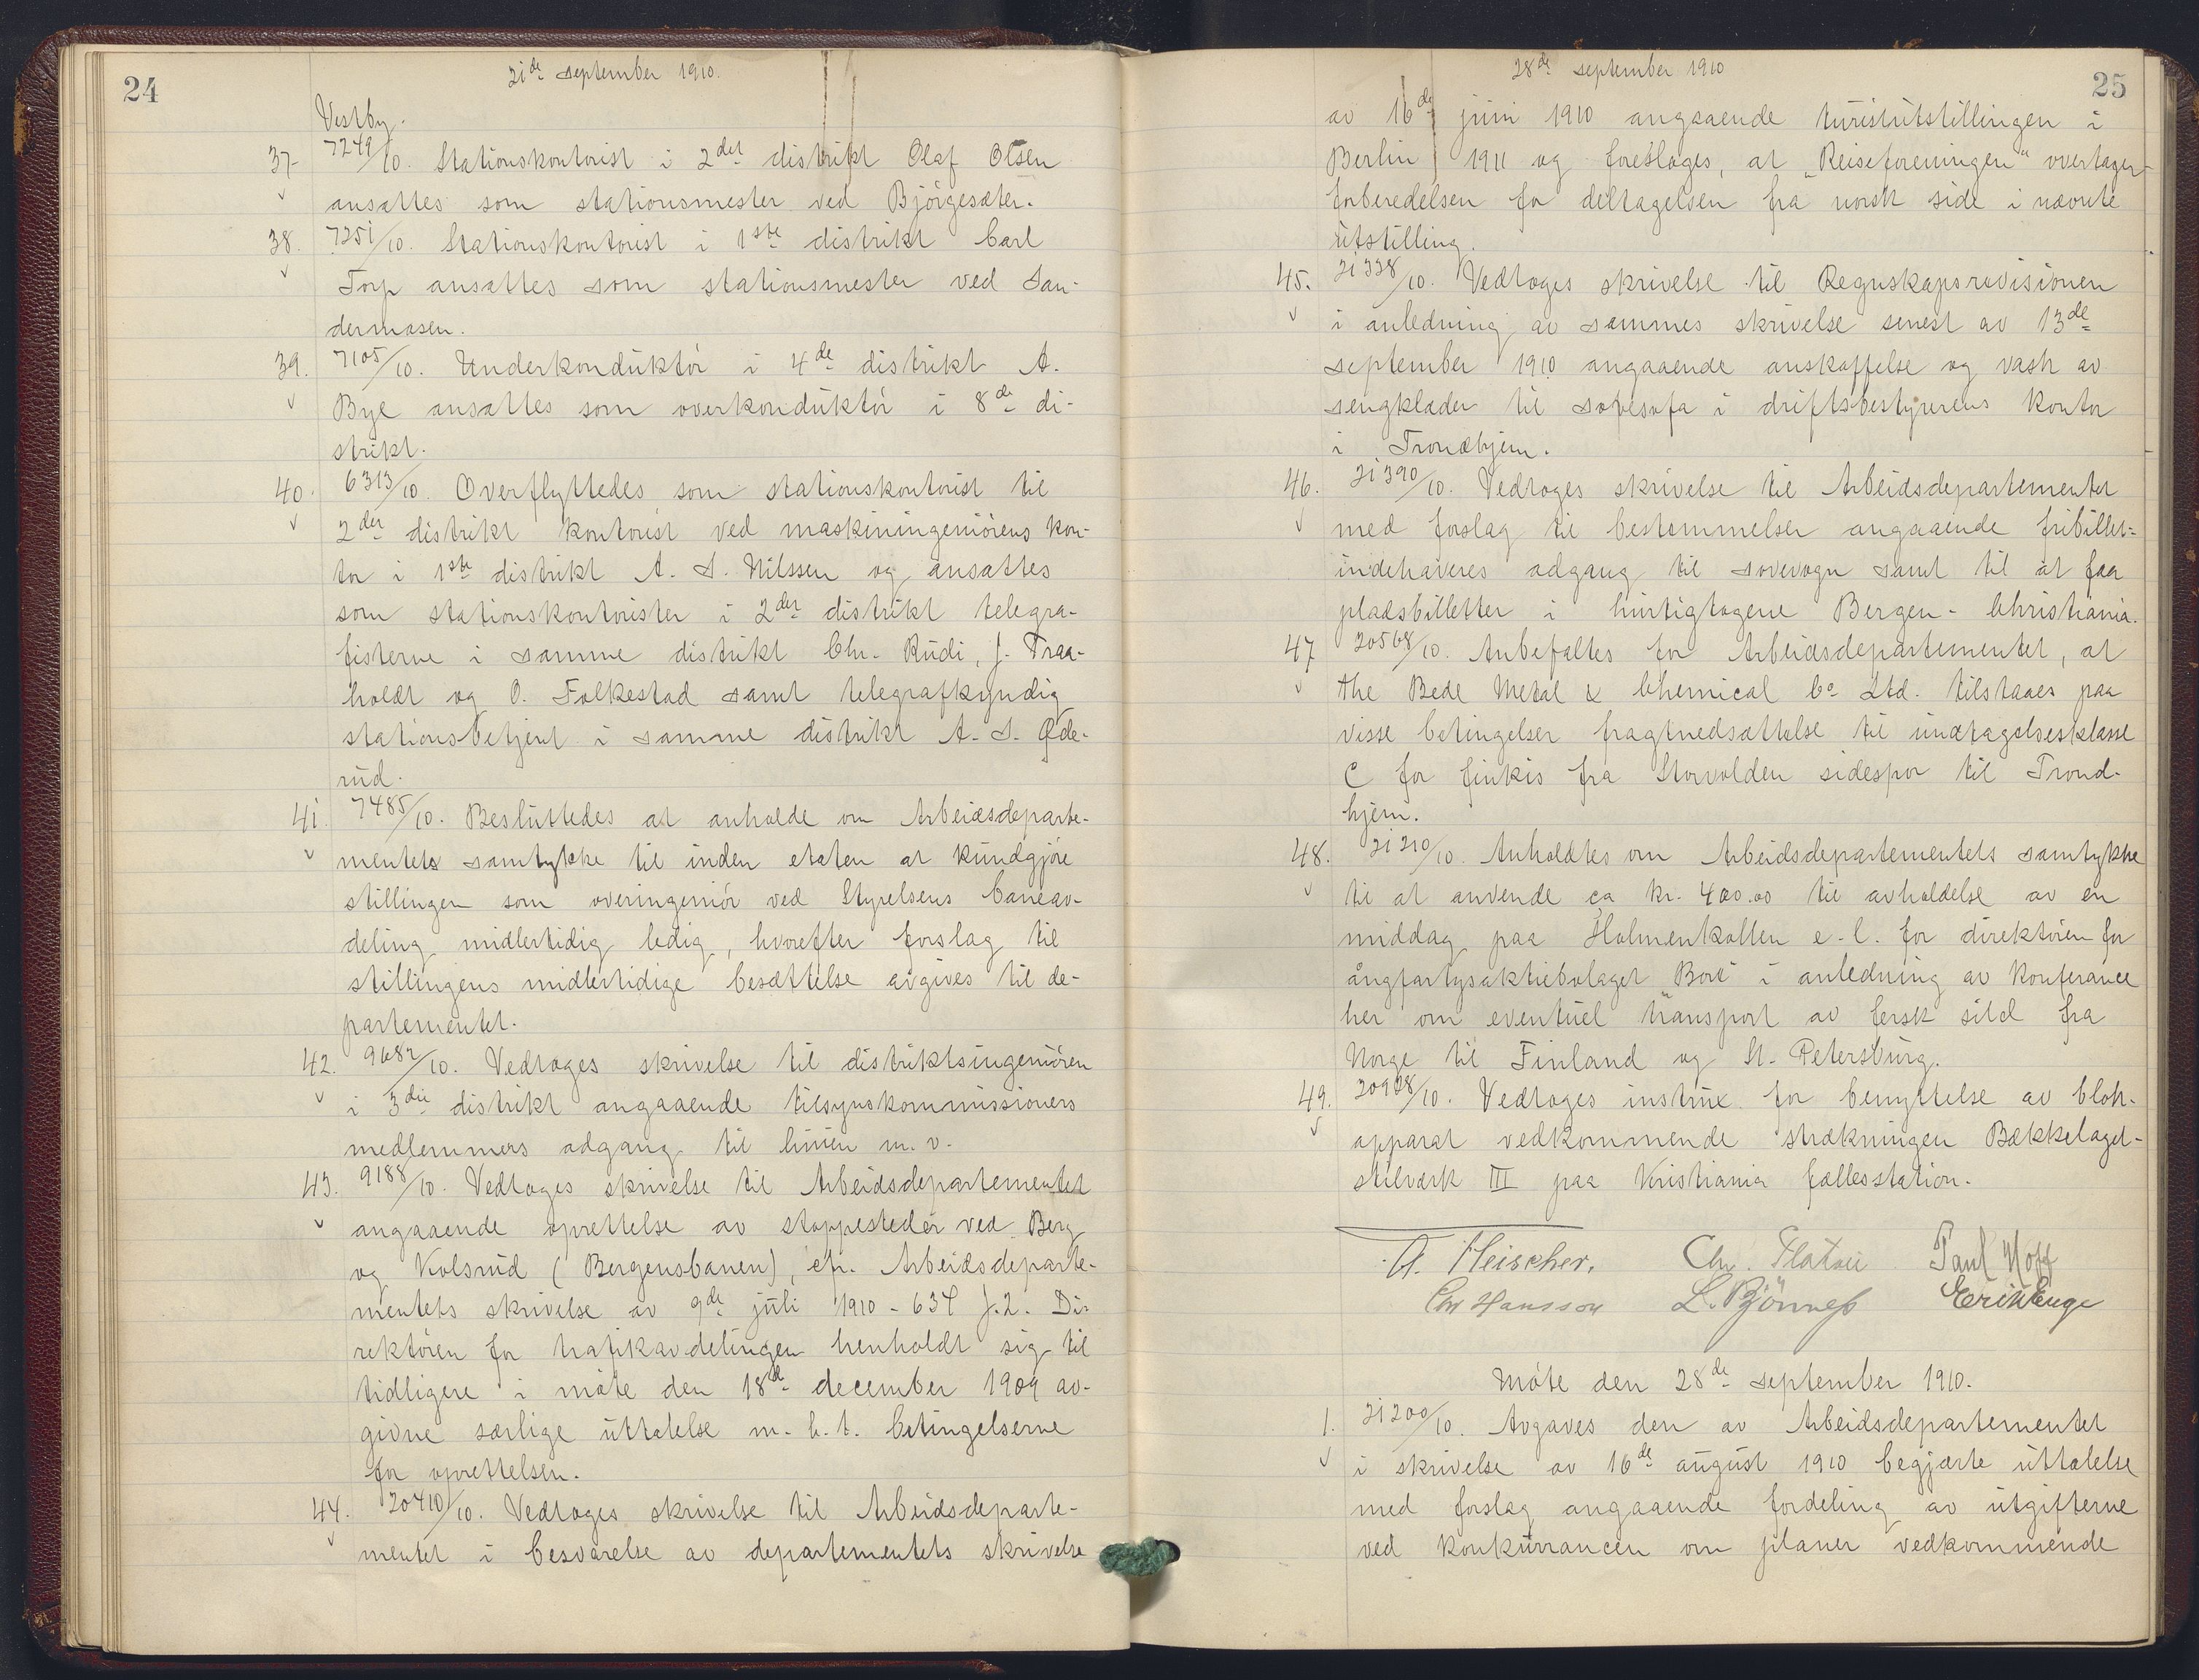 24
21de september 1910.
Vestby.
37. 7249/10. Stationskontorist i 2det distrikt Olaf Olsen
ansættes som stationsmester ved Bjørgesæter.
38. 7251/10. Stationskontorist i 1ste distrikt Carl
Torp ansættes som stationsmester ved San-
dermosen.
39. 7105/10. Underkonduktør i 4de distrikt A.
Bye ansættes som overkonduktør i 8de di-
strikt.
40. 6313/10. Overflyttedes som stationskontorist til
2det distrikt kontorist ved maskiningeniørens kon-
tor i 1ste distrikt A. S. Nilssen og ansættes
som stationskontorister i 2det distrikt telegra-
fisterne i samme distrikt Chr. Rudi, J. Traa-
holdt og O. Folkestad samt telegrafkyndig
stationsbetjent i samme distrikt A. S. Øde-
rud.
41. 7485/10. Besluttedes at anholde om Arbeidsdeparte-
mentets samtykke til inden etaten at kundgjøre
stillingen som overingeniør ved Styrelsens baneav-
deling midlertidig ledig, hvorefter forslag til
stillingens midlertidige besættelse avgives til de-
partementet.
42. 9682/10. Vedtoges skrivelse til distriktsingeniøren
i 3die distrikt angaaende tilsynskommissioners
medlemmers adgang til linien m. v.
43. 9188/10. Vedtoges skrivelse til Arbeidsdepartementet
angaaende oprettelse av stoppesteder ved Berg
og Kolsrud (Bergensbanen), cfr. Arbeidsdeparte-
mentets skrivelse av 9de juli 1910 - 634 J.2. Di-
rektøren for trafikavdelingen henholdt sig til
tidligere i møte den 18de december 1909 av-
givne særlige uttalelse m. h. t. betingelserne
for oprettelsen.
44. 20410/10. Vedtoges skrivelse til Arbeidsdeparte-
mentet i besvarelse av departementets skrivelse
28de september 1910
25
av 16de juni 1910 angaaende turistutstillingen i
Berlin 1911 og foreslages, at „Reiseforeningen“ overtager
forberedelsen for deltagelsen fra norsk side i nævnte
utstilling.
45. 21328/10. Vedtoges skrivelse til Regnskapsrevisionen
i anledning av sammes skrivelse senest av 13de
september 1910 angaaende anskaffelse og vask av
sengklæder til sovesofa i driftsbestyrerens kontor
i Trondhjem.
46. 21390/10. Vedtoges skrivelse til Arbeidsdepartementet
med forslag til bestemmelser angaaende fribillet-
indehaveres adgang til sovevogn samt til at faa
pladsbilletter i hurtigtogene Bergen - Christiania.
47. 20568/10. Anbefaltes for Arbeidsdepartementet, at
the Bede Metal & Chemical Co Ltd. tilstaaes paa
visse betingelser fragtnedsættelse til undtagelsesklasse
C for finkis fra Storvolden sidespor til Trond-
hjem.
48. 21210/10. Anholdtes om Arbeidsdepartementets samtykke
til at anvende ca kr. 400.00 til avholdelse av en
middag paa Holmenkollen e. l. for direktøren for
ångfartygsaktiebolaget „Bore“ i anledning av konferance
her om eventuel transport av fersk sild fra
Norge til Finland og St. Petersburg.
49. 20928/10. Vedtoges instrux for benyttelse av blok-
apparat vedkommende strækningen Bækkelaget-
stilværk III paa Kristiania fællesstation.
A. Fleischer. Chr. Platou Paul Hoff
Chr Hansson L. Bjønness Erik Enge
Møte den 28de september 1910.
1. 21200/10. Avgaves den av Arbeidsdepartementet
i skrivelse av 16de august 1910 begjærte uttalelse
med forslag angaaende fordeling av utgifterne
ved konkurrancen om planer vedkommende